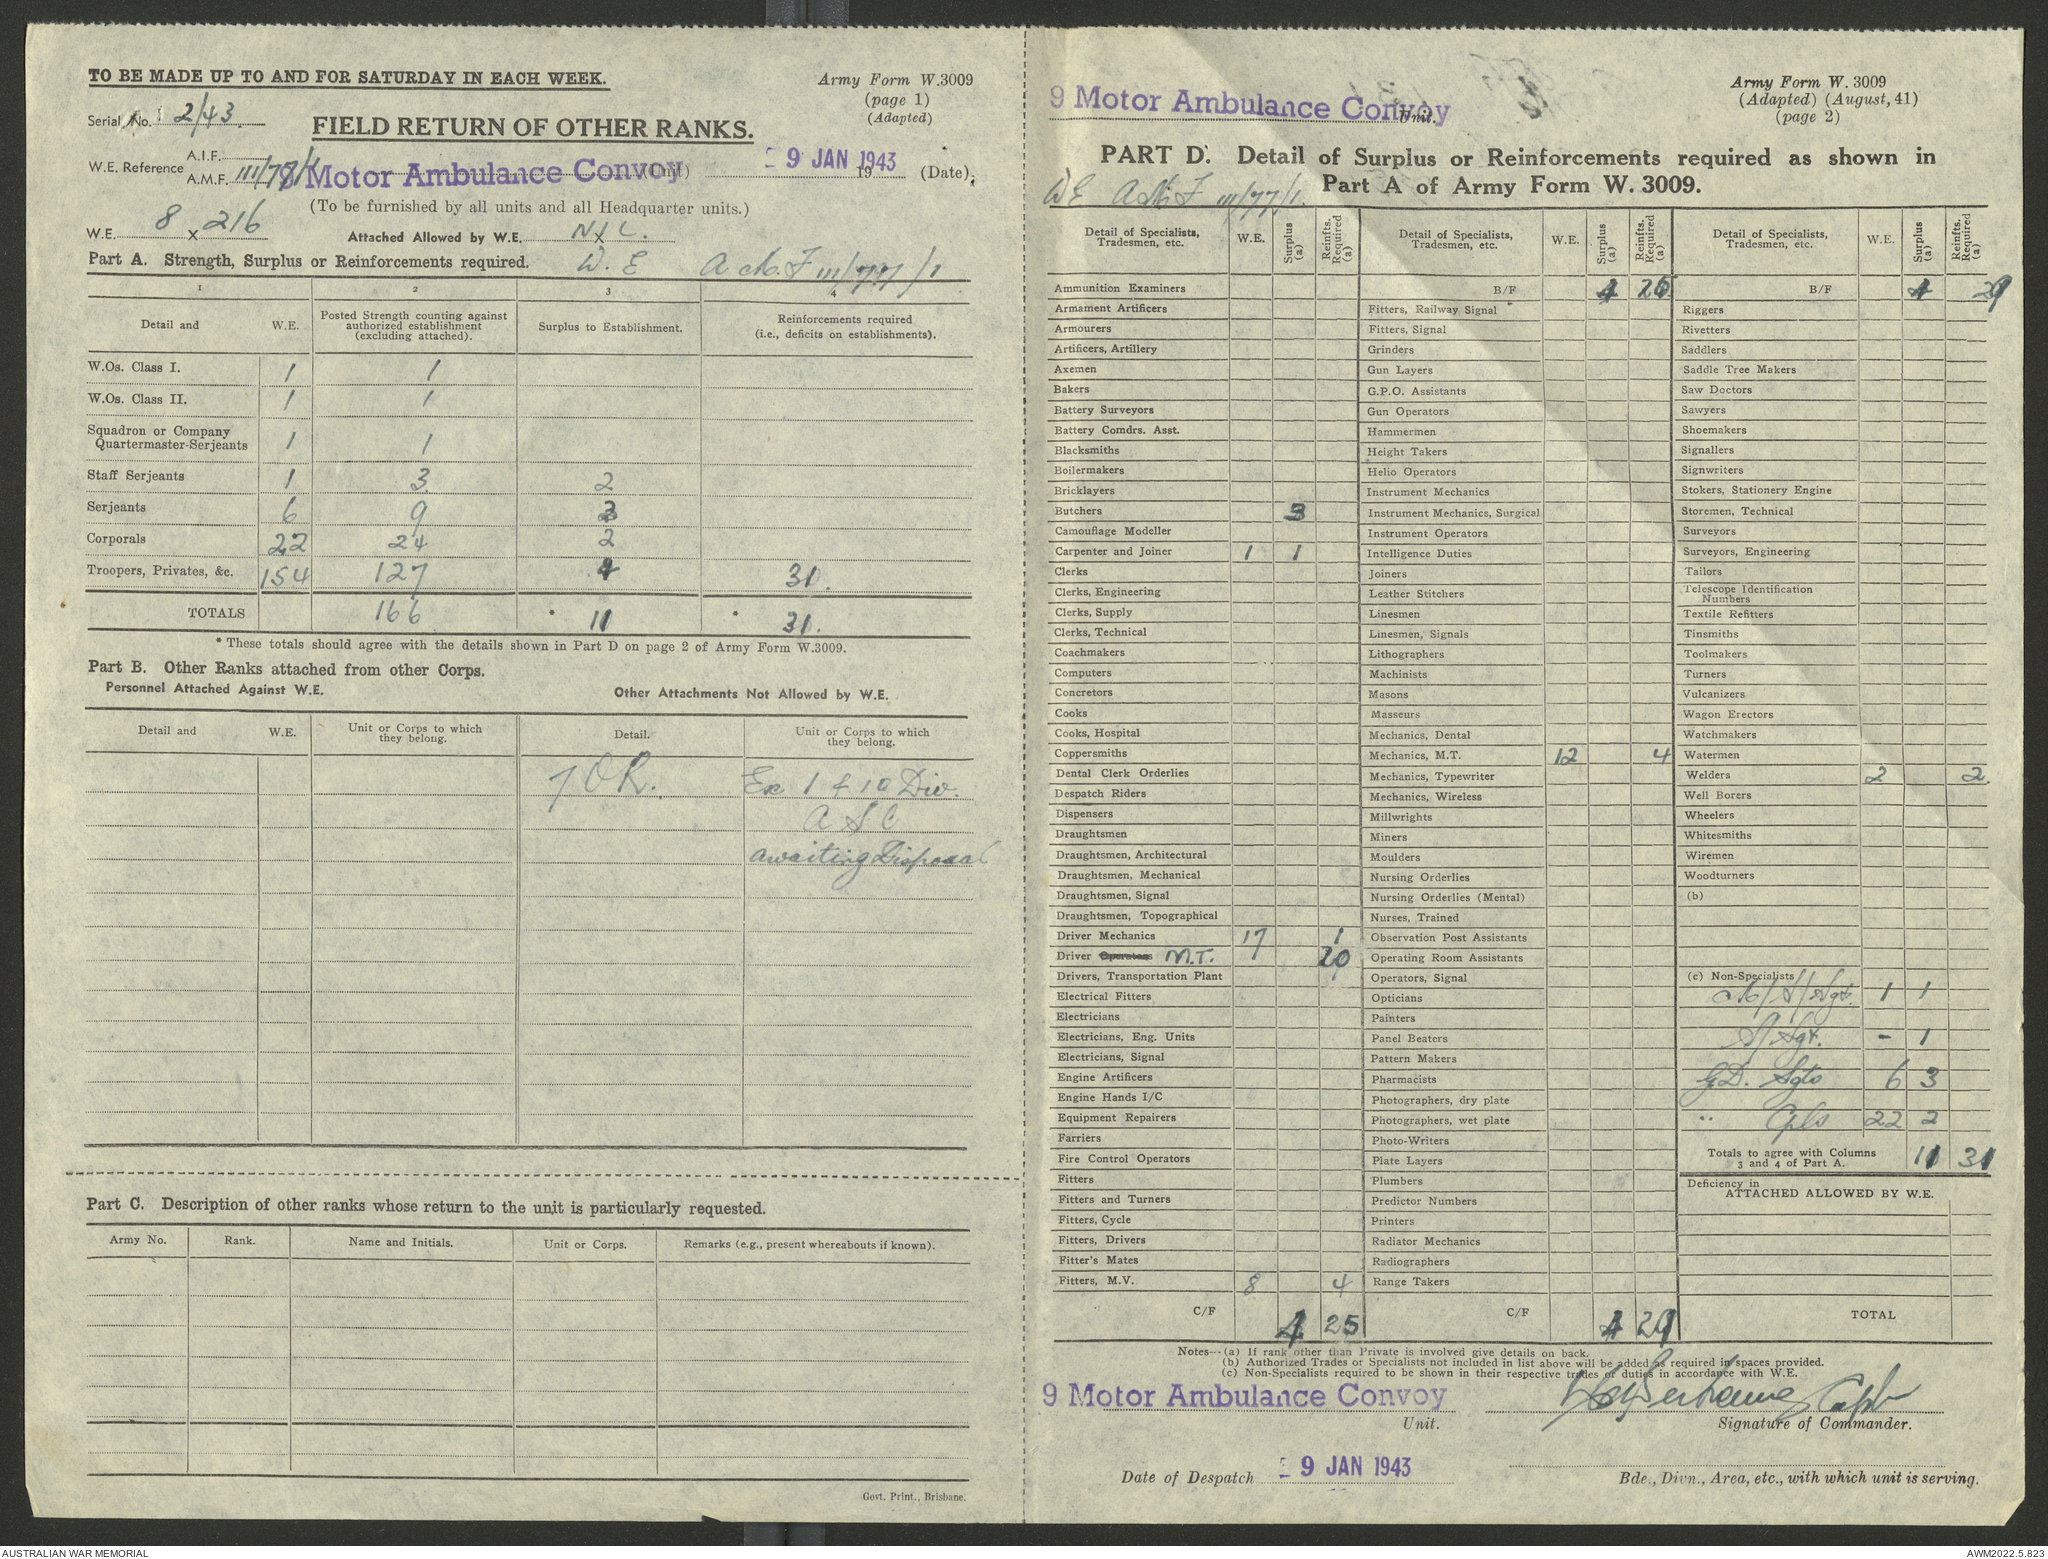 TO BE MADE UP TO AND FOR SATURDAY IN EACH WEEK.
Army Form W.3009
(page 1)
(Adapted)
Serial No. 2/43.
FIELD RETURN OF OTHER RANKS.
W.E. Reference A.I.F.
A.M.F. III/77/1
9 Motor Ambulance Convoy (Unit) 9 JAN 1943 19 (Date).
(To be furnished by all units and all Headquarter units.)
W.E. 8 x 216 Attached Allowed by W.E. NIL.
Part A. Strength, Surplus or Reinforcements required. W.E A.M.F III/77/1
1 2 3 4
Detail and W.E. Posted Strength counting against authorized establishment (excluding attached). Surplus to Establishment. Reinforcements required (i.e., deficits on establishments).
W.Os. Class I. 1 1
W.Os. Class II. 1 1
Squadron or Company Quartermaster-Serjeants 1 1
Staff Serjeants 1 3 2
Serjeants 6 9 3
Corporals 22 24 2
Troopers, Privates, &c. 154 127 4 31.
TOTALS 166 * 11 * 31.
* These totals should agree with the details shown in Part D on page 2 of Army Form W.3009.
Part B. Other Ranks attached from other Corps.
Personnel Attached Against W.E. Other Attachments Not Allowed by W.E.
Detail and W.E. Unit or Corps to which they belong. Detail. Unit or Corps to which they belong.
7 OR. Ex 1 & 10 Div.
A S C
awaiting Disposal
Part C. Description of other ranks whose return to the unit is particularly requested.
Army No. Rank. Name and Initials. Unit or Corps. Remarks (e.g., present whereabouts if known).
Govt. Print., Brisbane.
9 Motor Ambulance Convoy Unit.
Army Form W. 3009
(Adapted) (August, 41)
(page 2)
PART D. Detail of Surplus or Reinforcements required as shown in
Part A of Army Form W. 3009.
WE AMF III/77/1.
Detail of Specialists, Tradesmen, etc. W.E. Surplus (a) Reinfts. Required (a)
Ammunition Examiners
Armament Artificers
Armourers
Artificers, Artillery
Axemen
Bakers
Battery Surveyors
Battery Comdrs. Asst.
Blacksmiths
Boilermakers
Bricklayers
Butchers 3
Camouflage Modeller
Carpenter and Joiner 1 1
Clerks
Clerks, Engineering
Clerks, Supply
Clerks, Technical
Coachmakers
Computers
Concretors
Cooks
Cooks, Hospital
Coppersmiths
Dental Clerk Orderlies
Despatch Riders
Dispensers
Draughtsmen
Draughtsmen, Architectural
Draughtsmen, Mechanical
Draughtsmen, Signal
Draughtsmen, Topographical
Driver Mechanics 17 1
Driver Operators M.T. 20
Drivers, Transportation Plant
Electrical Fitters
Electricians
Electricians, Eng. Units
Electricians, Signal
Engine Artificers
Engine Hands I/C
Equipment Repairers
Farriers
Fire Control Operators
Fitters
Fitters and Turners
Fitters, Cycle
Fitters, Drivers
Fitter's Mates
Fitters, M.V. 8 4
C/F 4 25
Detail of Specialists, Tradesmen, etc. W.E. Surplus (a) Reinfts. Required (a)
B/F 4 25
Fitters, Railway Signal
Fitters, Signal
Grinders
Gun Layers
G.P.O. Assistants
Gun Operators
Hammermen
Height Takers
Helio Operators
Instrument Mechanics
Instrument Mechanics, Surgical
Instrument Operators
Intelligence Duties
Joiners
Leather Stitchers
Linesmen
Linesmen, Signals
Lithographers
Machinists
Masons
Masseurs
Mechanics, Dental
Mechanics, M.T. 12 4
Mechanics, Typewriter
Mechanics, Wireless
Millwrights
Miners
Moulders
Nursing Orderlies
Nursing Orderlies (Mental)
Nurses, Trained
Observation Post Assistants
Operating Room Assistants
Operators, Signal
Opticians
Painters
Panel Beaters
Pattern Makers
Pharmacists
Photographers, dry plate
Photographers, wet plate
Photo-Writers
Plate Layers
Plumbers
Predictor Numbers
Printers
Radiator Mechanics
Radiographers
Range Takers
C/F 4 29
Detail of Specialists, Tradesmen, etc. W.E. Surplus (a) Reinfts. Required (a)
B/F 4 29
Riggers
Rivetters
Saddlers
Saddle Tree Makers
Saw Doctors
Sawyers
Shoemakers
Signallers
Signwriters
Stokers, Stationery Engine
Storemen, Technical
Surveyors
Surveyors, Engineering
Tailors
Telescope Identification Numbers
Textile Refitters
Tinsmiths
Toolmakers
Turners
Vulcanizers
Wagon Erectors
Watchmakers
Watermen
Welders 2 2.
Well Borers
Wheelers
Whitesmiths
Wiremen
Woodturners
(b)
(c) Non-Specialists
M/S/Sgt. 1 1
S/Sgt. - 1
G.D. Sgts 6 3
" Cpls 22 2
Totals to agree with Columns 3 and 4 of Part A. 11 31
Deficiency in
ATTACHED ALLOWED BY W.E.
TOTAL
Notes—(a) If rank other than Private is involved give details on back.
(b) Authorized Trades or Specialists not included in list above will be added as required in spaces provided.
(c) Non-Specialists required to be shown in their respective trades or duties in accordance with W.E.
9 Motor Ambulance Convoy
Unit.
Capt
Signature of Commander.
Date of Despatch 9 JAN 1943
Bde., Divn., Area, etc., with which unit is serving.
AUSTRALIAN WAR MEMORIAL
AWM2022.5.823